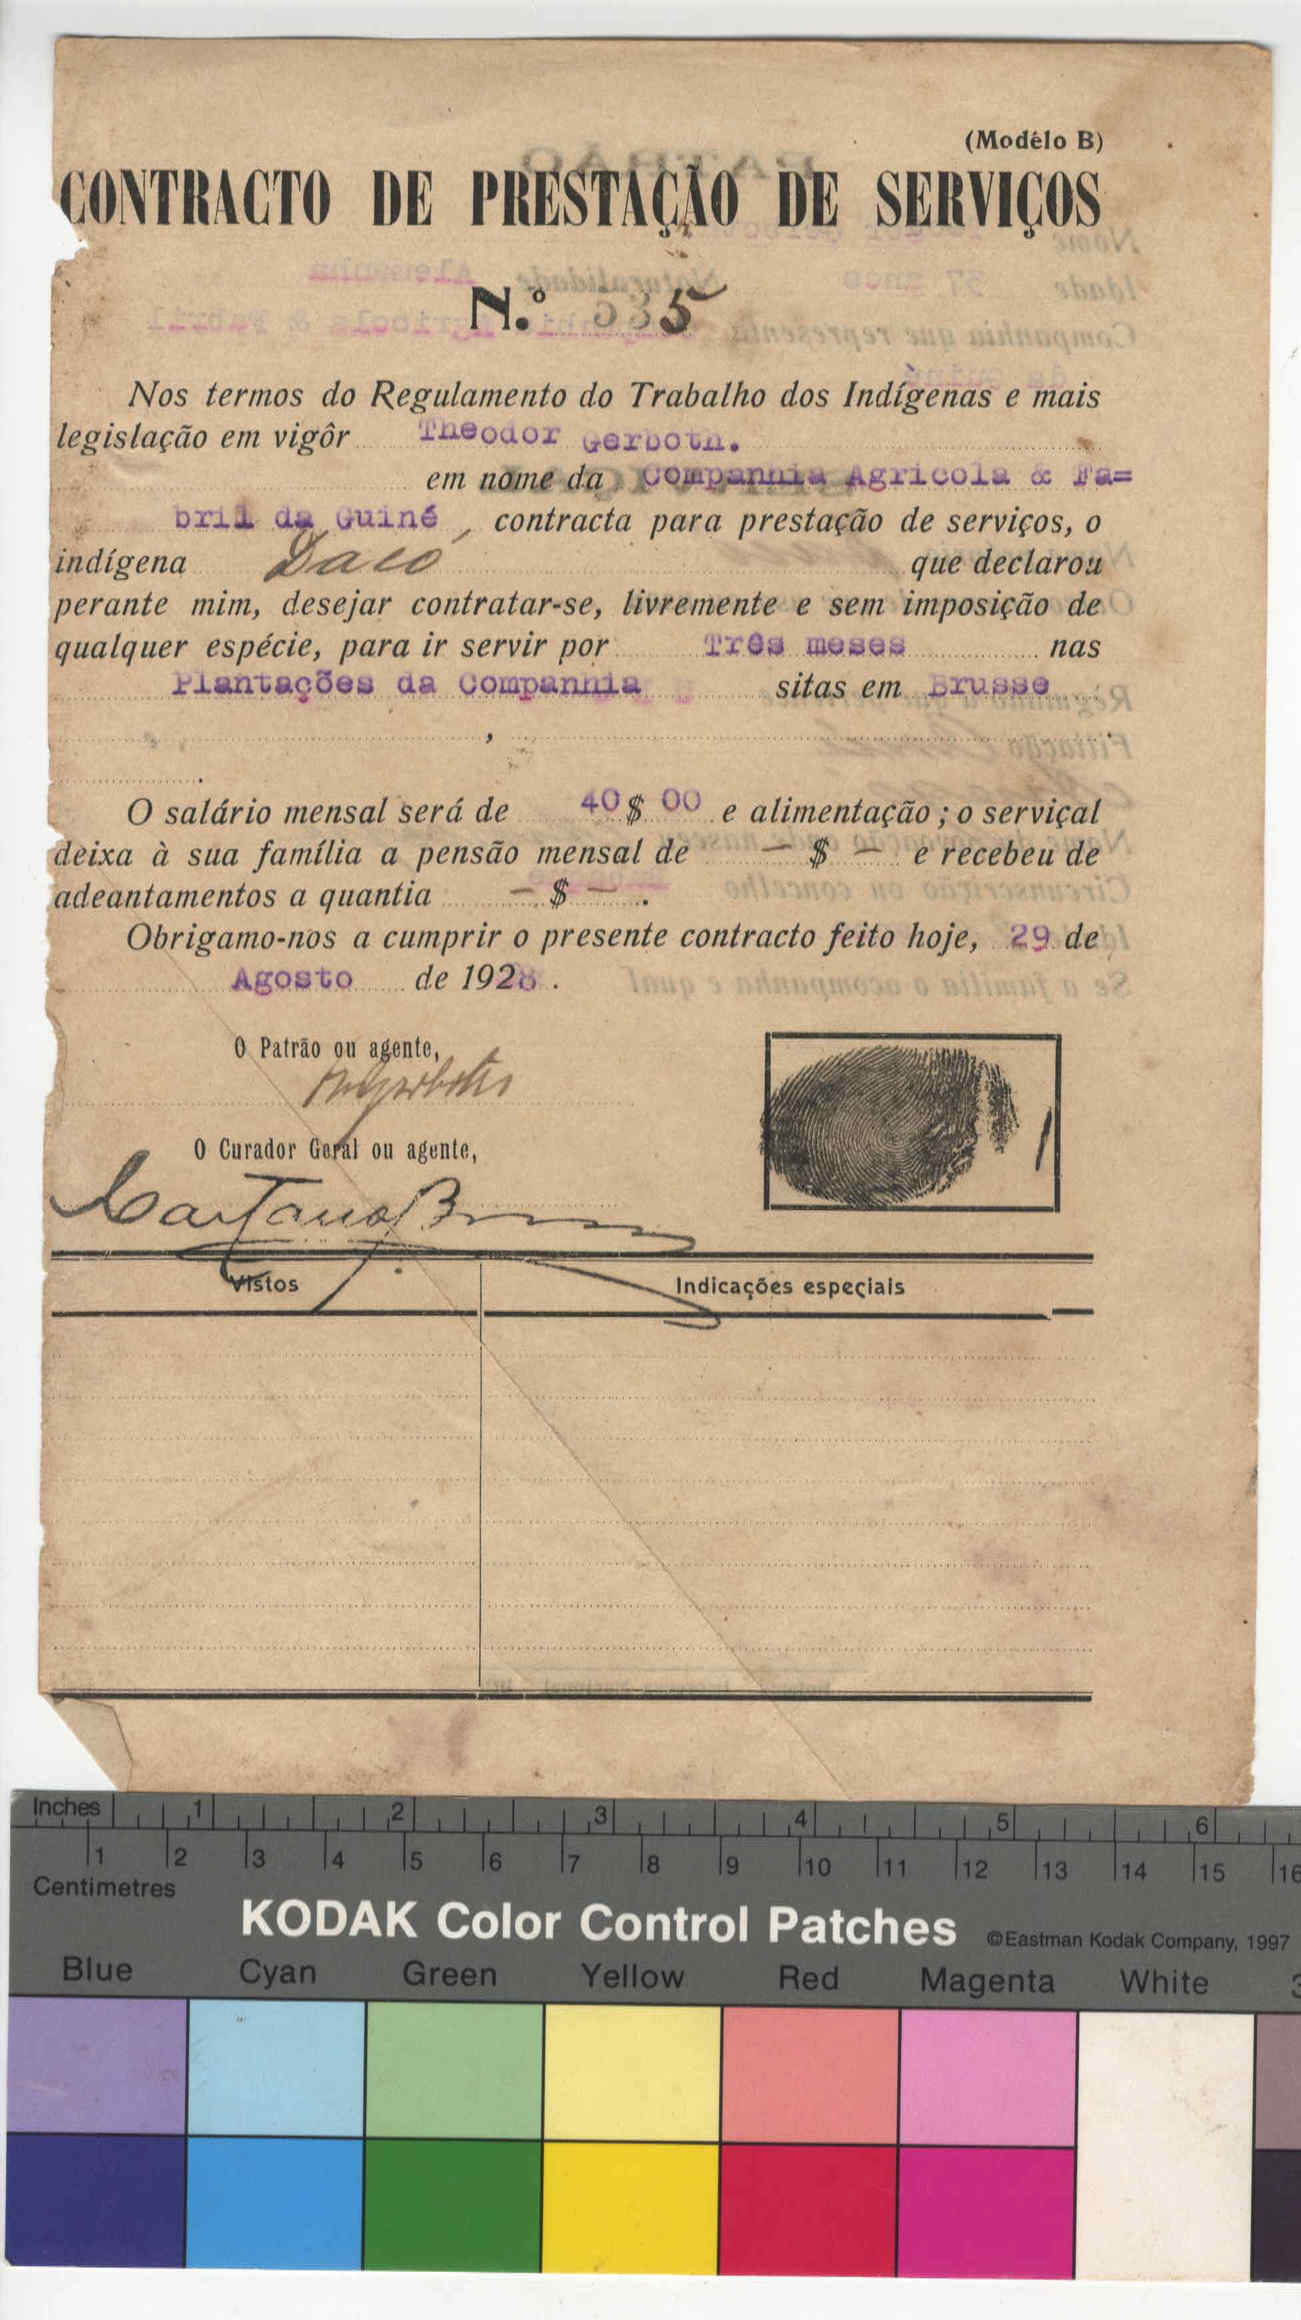 (Modêlo B)
CONTRACTO DE PRESTAÇÃO DE SERVIÇOS
N.º 535
Nos termos do Regulamento do Trabalho dos Indígenas e mais
legislação em vigôr Theodor Gerboth.
em nome da Companhia Agricola & Fa=
bril da Guiné, contracta para prestação de serviços, o
indígena Dacó que declarou
perante mim, desejar contratar-se, livremente e sem imposição de
qualquer espécie, para ir servir por Três meses nas
Plantações da Companhia sitas em Brusse
,
.
O salário mensal será de 40$00 e alimentação; o serviçal
deixa à sua família a pensão mensal de —$— e recebeu de
adeantamentos a quantia —$—.
Obrigamo-nos a cumprir o presente contracto feito hoje, 29 de
Agosto de 1928.
O Patrão ou agente,
O Curador Geral ou agente,
Caetano B
Vistos Indicações especiais
Inches 1 2 3 4 5 6
1 2 3 4 5 6 7 8 9 10 11 12 13 14 15 16
Centimetres
KODAK Color Control Patches ©Eastman Kodak Company, 1997
Blue Cyan Green Yellow Red Magenta White 3